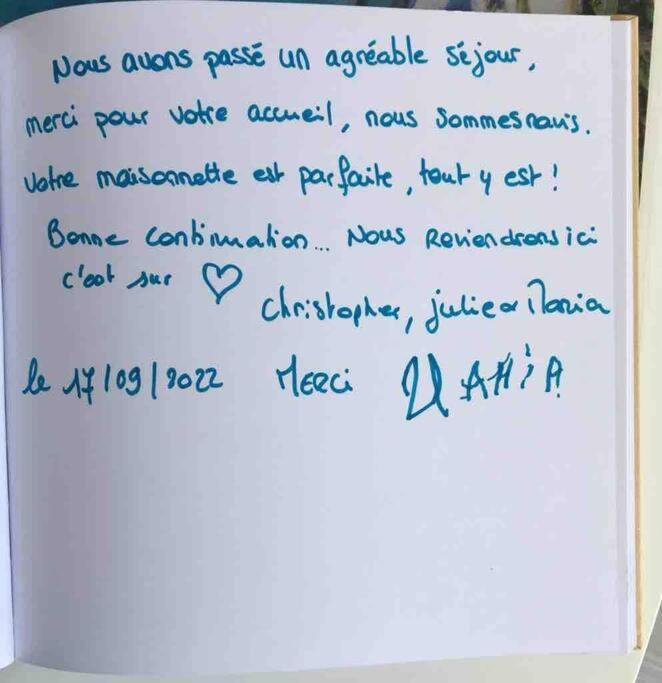 Nous avons passé un agréable séjour,
merci pour votre accueil, nous sommes ravis.
Votre maisonnette est parfaite, tout y est !
Bonne continuation... Nous Reviendrons ici
c'est sur ♡
Christopher, julie &
le 17/09/2022 Merci